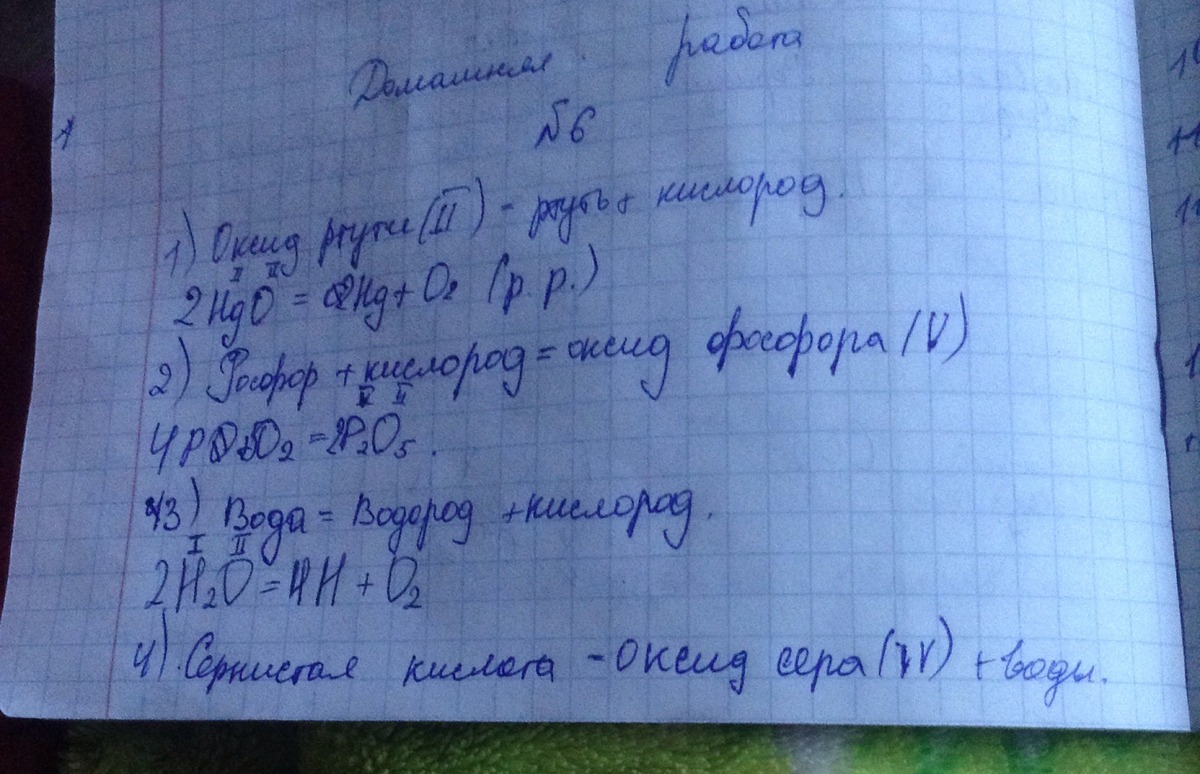 Домашняя работа
№6
1) Оксид ртути (II) - ртуть + кислород.
II II
2HgO = 2Hg + O₂ (р.р.)
2) Фосфор + кислород = оксид фосфора (V)
V II
4P + 5O₂ = 2P₂O₅.
3) Вода = Водород + кислород.
I II
2H₂O = 4H + O₂
4) Сернистая кислота - оксид сера (IV) + воды.